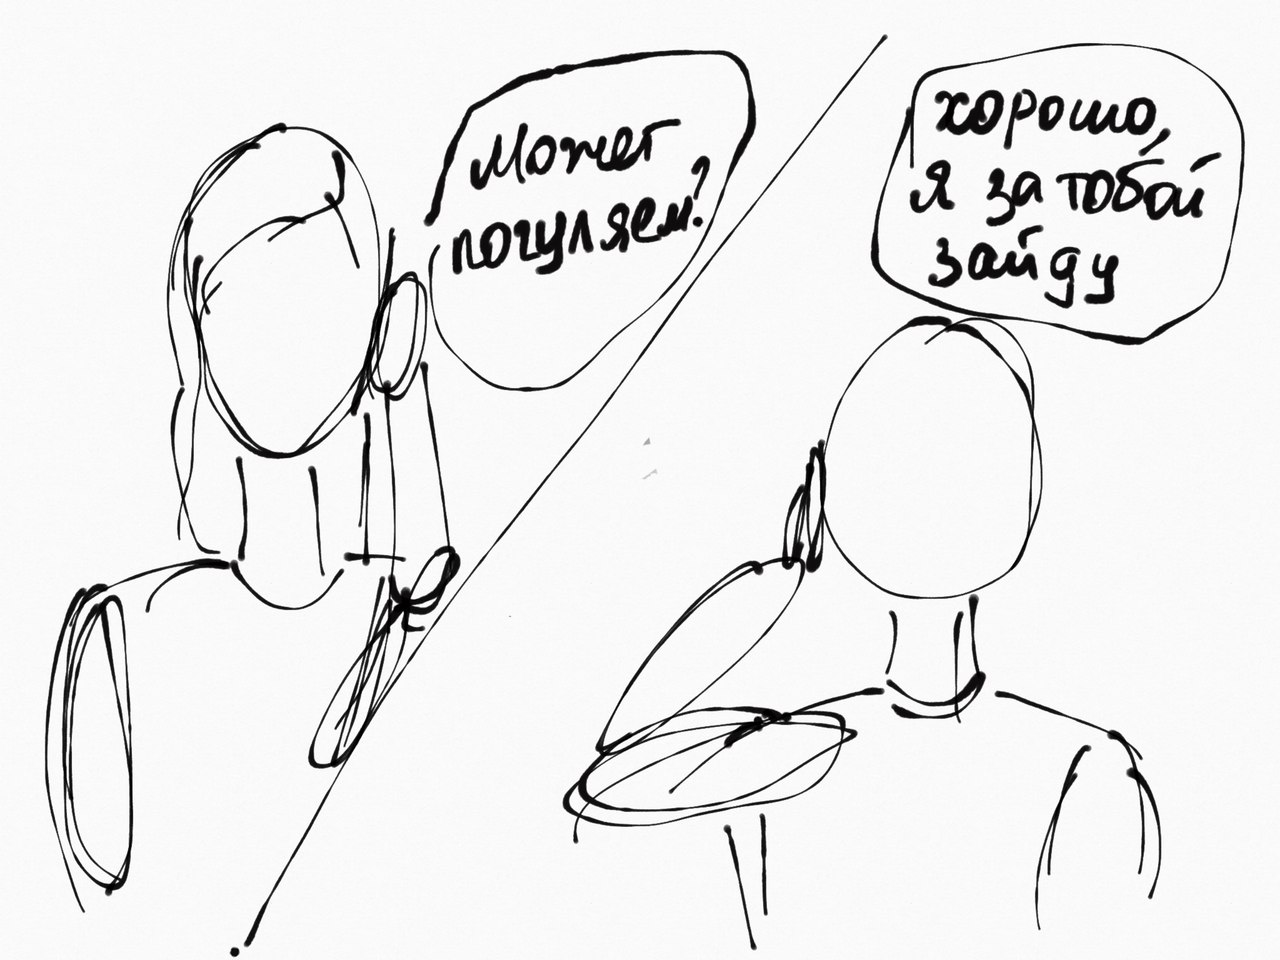 Может
погуляем?
хорошо,
я за тобой
зайду